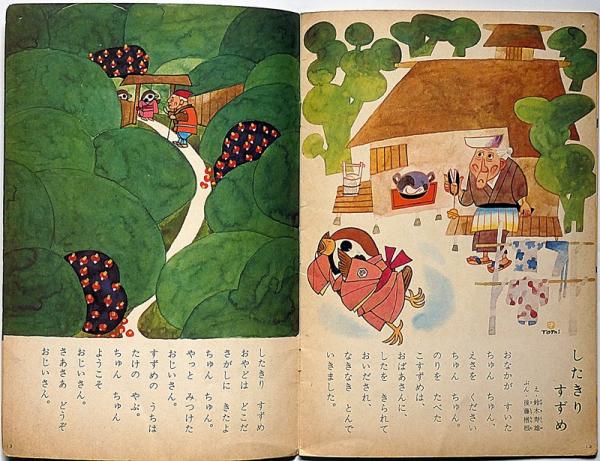 したきり
すずめ
え・鈴木寿雄
ぶん・後藤楢根
おなかが すいた
ちゅん ちゅん、
えさを ください
ちゅん ちゅん。
のりを たべた
こすずめは、
おばあさんに、
したを きられて
おいだされ、
なきなき とんで
いきました。
したきり すずめ
おやどは どこだ
さがしに きたよ
ちゅん ちゅん。
やっと みつけた
おじいさん。
すずめの うちは
たけの やぶ。
ちゅん ちゅん
ようこそ
おじいさん。
さあさあ どうぞ
おじいさん。